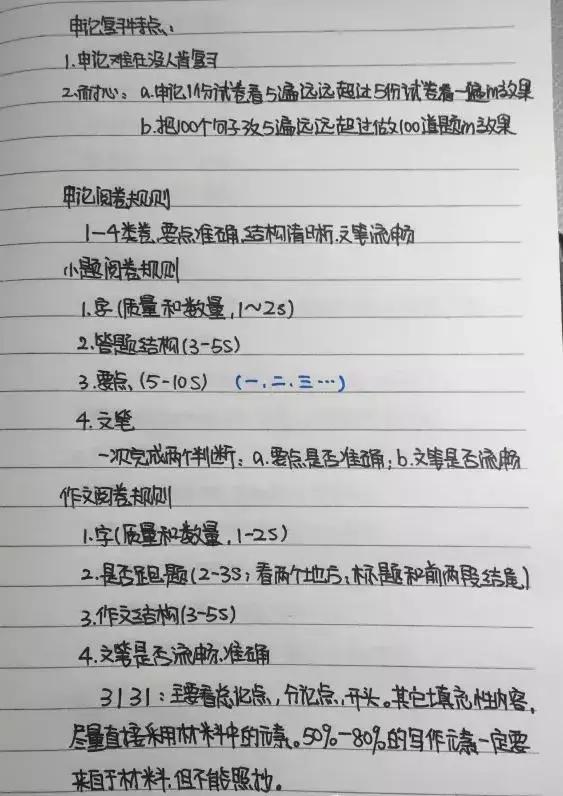 申论复习特点:
1.申论难在没人肯复习
2.耐心: a.申论1份试卷看5遍远远超过5份试卷看一遍的效果
b.把100个句子改5遍远远超过做100道题的效果
申论阅卷规则
1-4类卷,要点准确,结构清晰,文笔流畅
小题阅卷规则
1.字(质量和数量,1~2s)
2.答题结构(3-5s)
3.要点,(5-10s) (一、二、三…)
4.文笔
一次完成两个判断:a.要点是否准确;b.文笔是否流畅
作文阅卷规则
1.字(质量和数量,1-2s)
2.是否跑题(2-3s;看两个地方:标题和前两段结尾)
3.作文结构(3-5s)
4.文笔是否流畅、准确
3131:主要看总论点,分论点,开头。其它填充性内容,
尽量直接采用材料中的元素。50%-80%的写作元素一定要
来自于材料,但不能照抄。